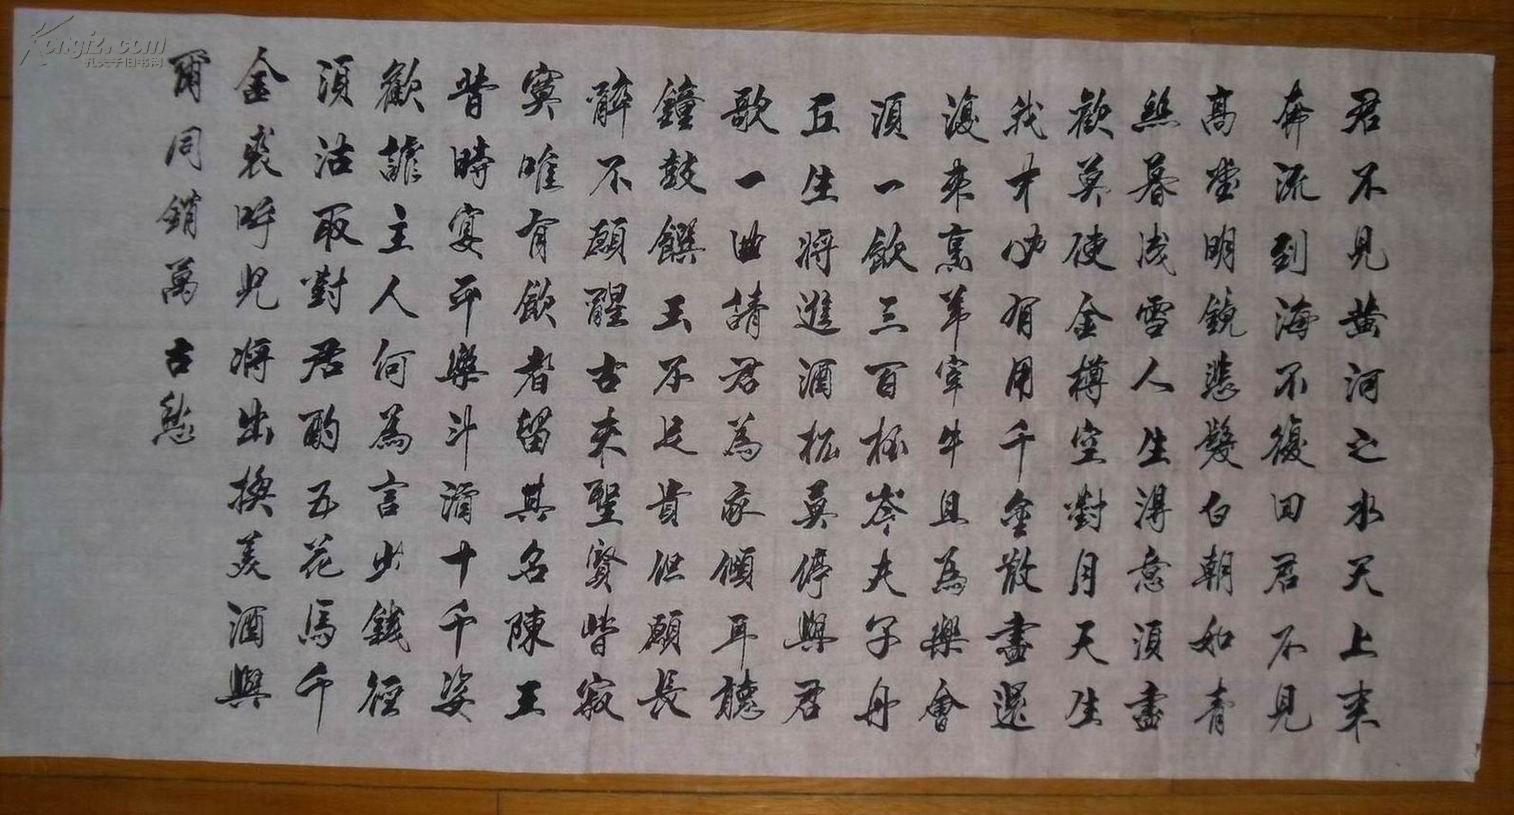 君不見黄河之水天上来
奔流到海不復回君不見
高堂明鏡悲髮白朝如青
絲暮成雪人生得意須盡
歡莫使金樽空對月天生
我才必有用千金散盡還
復来烹羊宰牛且為樂會
須一飲三百杯岑夫子丹
丘生將進酒杯莫停與君
歌一曲請君為我傾耳聽
鐘鼓饌玉不足貴但願長
醉不願醒古来聖賢皆寂
寞唯有飲者留其名陳王
昔時宴平樂斗酒十千姿
歡謔主人何為言少錢徑
須沽取對君酌五花馬千
金裘呼兒將出換美酒與
爾同銷萬古愁
Kongfz.com
孔夫子旧书网